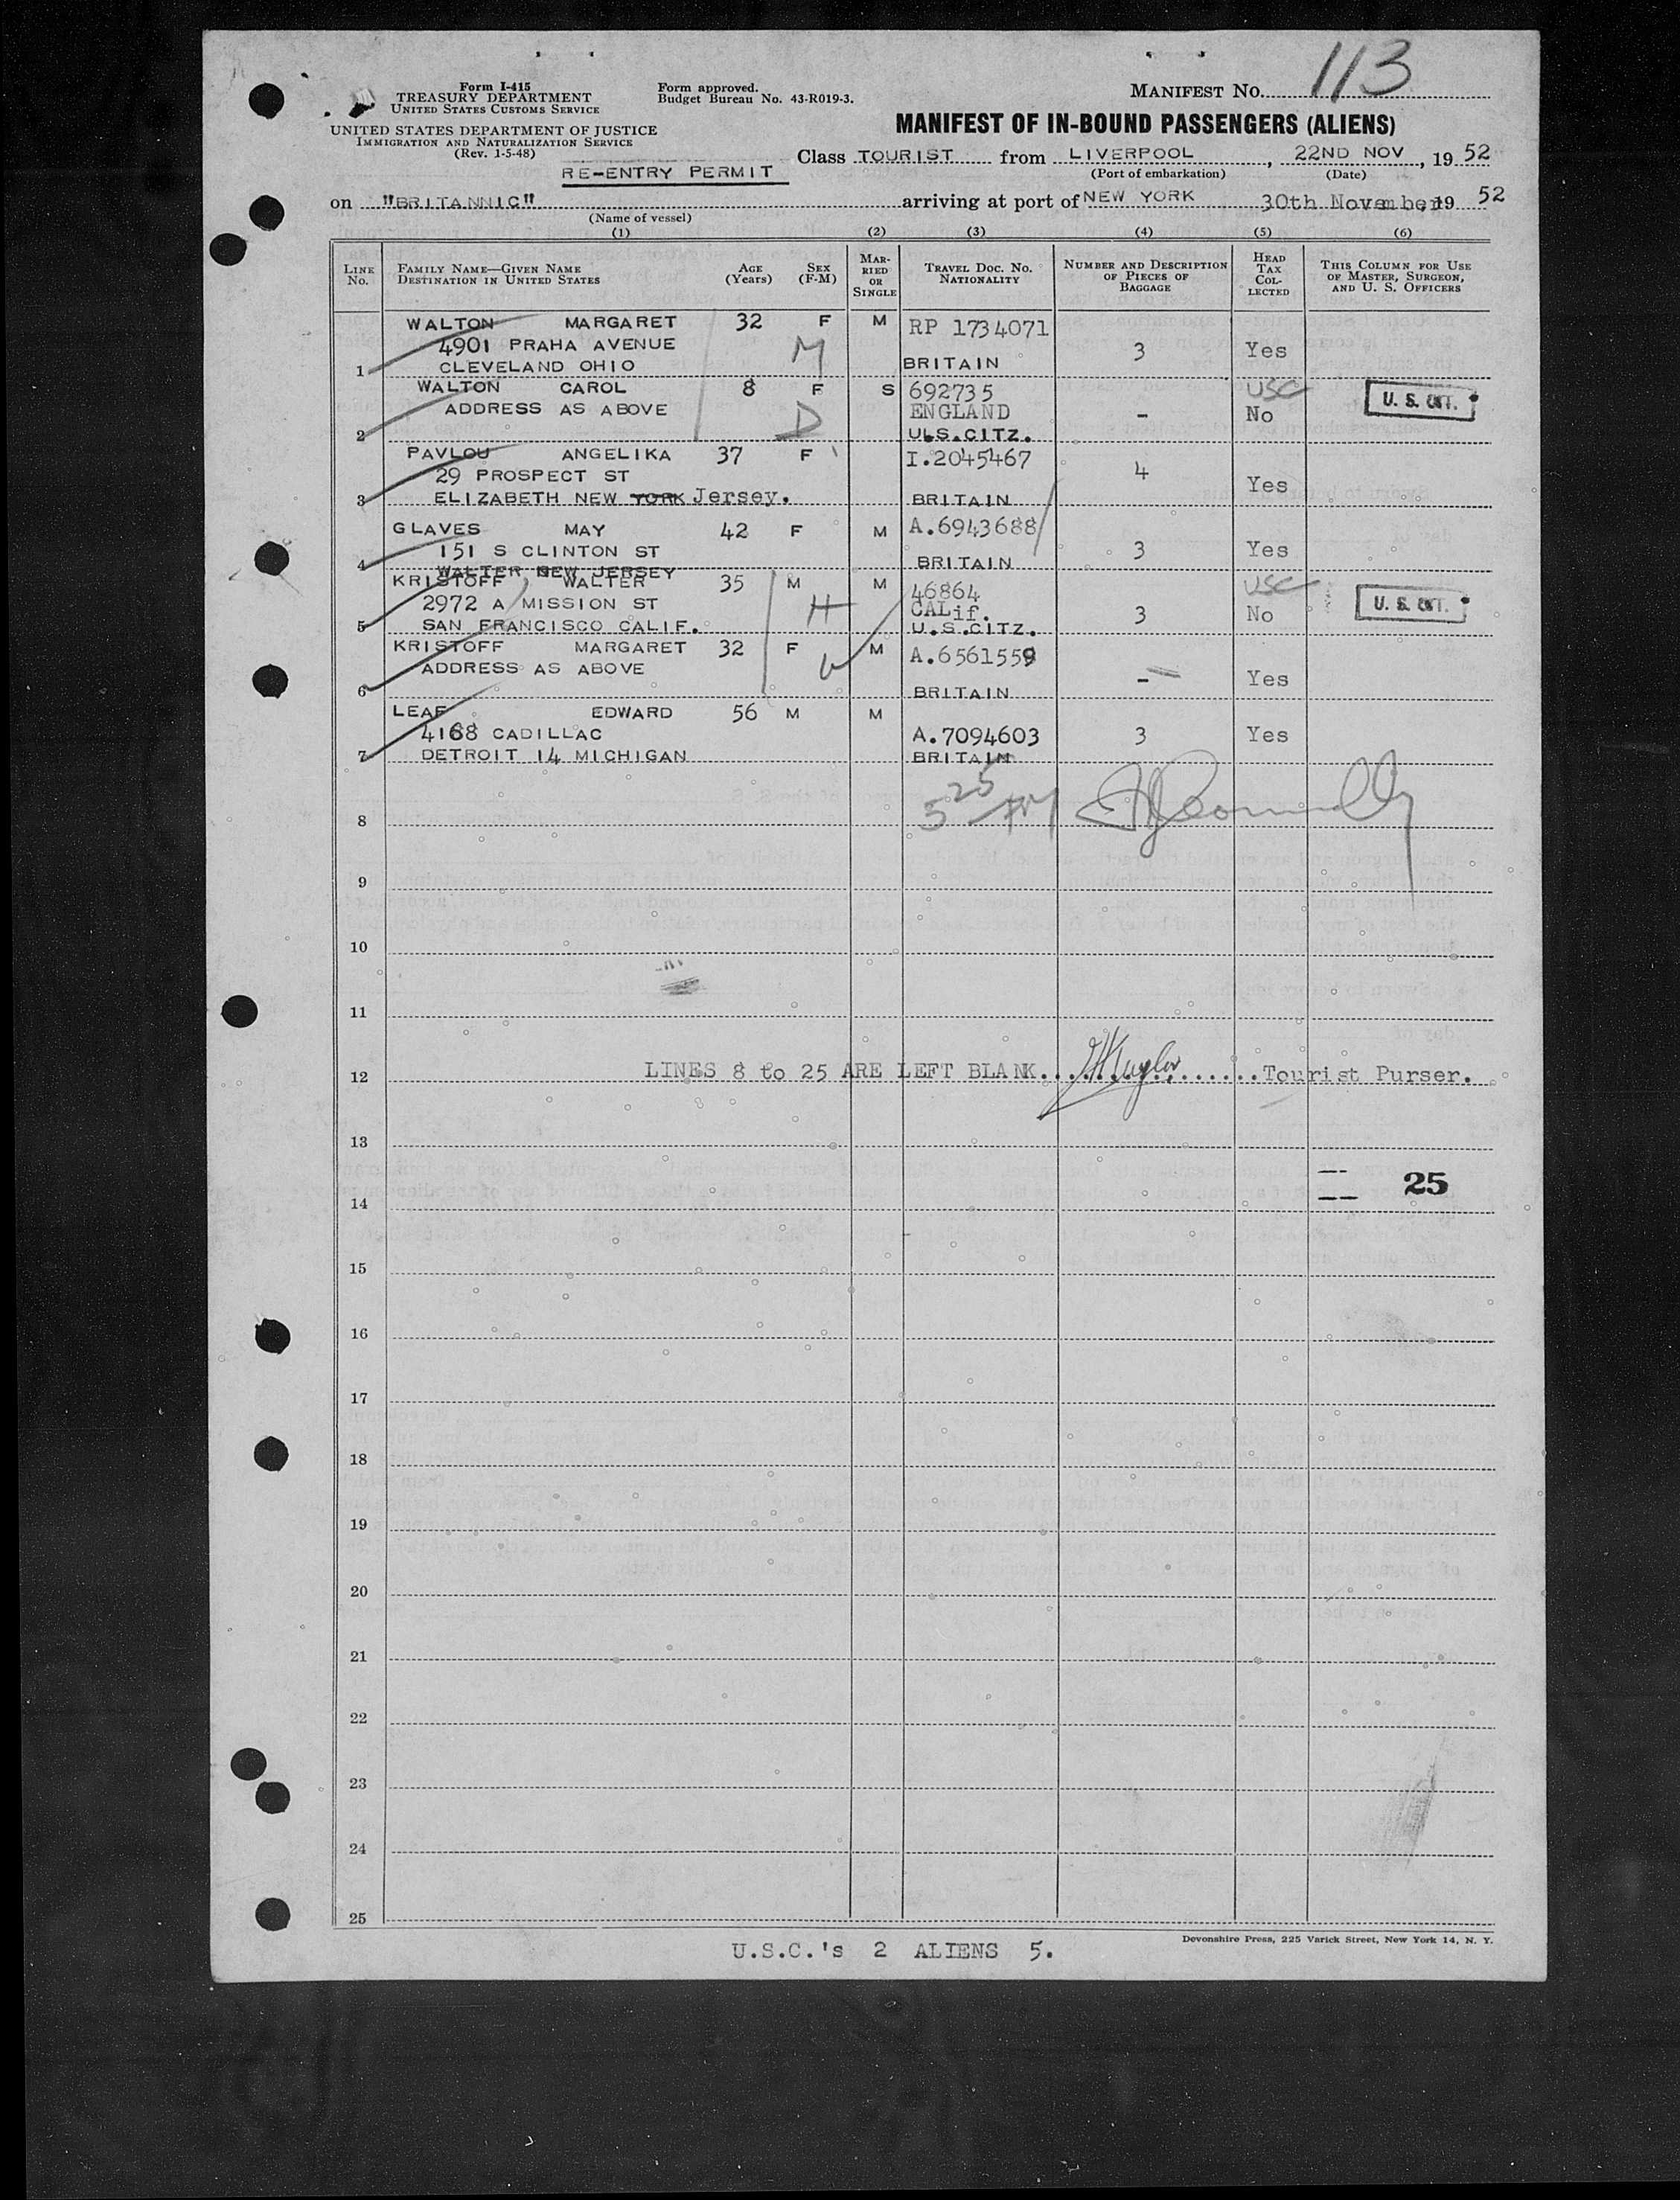 113
Form I-415
TREASURY DEPARTMENT
UNITED STATES CUSTOMS SERVICE
Form approved.
Budget Bureau No. 43-R019-3.
MANIFEST NO.
UNITED STATES DEPARTMENT OF JUSTICE
IMMIGRATION AND NATURALIZATION SERVICE
(Rev. 1-5-48)
MANIFEST OF IN-BOUND PASSENGERS (ALIENS)
Class TOURIST from LIVERPOOL, 22ND NOV, 1952
(Port of embarkation) (Date)
RE-ENTRY PERMIT
on "BRITANNIC" arriving at port of NEW YORK 30th November 1952
(Name of vessel)
(1) (2) (3) (4) (5) (6)
LINE NO. FAMILY NAME—GIVEN NAME DESTINATION IN UNITED STATES AGE (Years) SEX (F-M) MARRIED OR SINGLE TRAVEL DOC. NO. NATIONALITY NUMBER AND DESCRIPTION OF PIECES OF BAGGAGE HEAD TAX COLLECTED THIS COLUMN FOR USE OF MASTER, SURGEON, AND U. S. OFFICERS
WALTON MARGARET 32 F M RP 1734071
4901 PRAHA AVENUE M 3 Yes
1 CLEVELAND OHIO BRITAIN
WALTON CAROL 8 F S 692735 USC U. S. CIT.
ADDRESS AS ABOVE D ENGLAND - No
2 U.S.CITZ.
PAVLOU ANGELIKA 37 F I.2045467
29 PROSPECT ST 4 Yes
3 ELIZABETH NEW YORK Jersey. BRITAIN
GLAVES MAY 42 F M A.6943688
151 S CLINTON ST 3 Yes
4 NEW JERSEY BRITAIN
KRISTOFF WALTER 35 M M 46864 USC U. S. CIT.
2972 A MISSION ST H CALif. 3 No
5 SAN FRANCISCO CALIF. U.S.CITZ.
KRISTOFF MARGARET 32 F M A.6561559
ADDRESS AS ABOVE W - Yes
6 BRITAIN
LEAF EDWARD 56 M M
4168 CADILLAC A.7094603 3 Yes
7 DETROIT 14 MICHIGAN BRITAIN
8
9
10
11
12 LINES 8 to 25 ARE LEFT BLANK Tourist Purser.
13
25
14
15
16
17
18
19
20
21
22
23
24
25
Devonshire Press, 225 Varick Street, New York 14, N. Y.
U.S.C.'s 2 ALIENS 5.